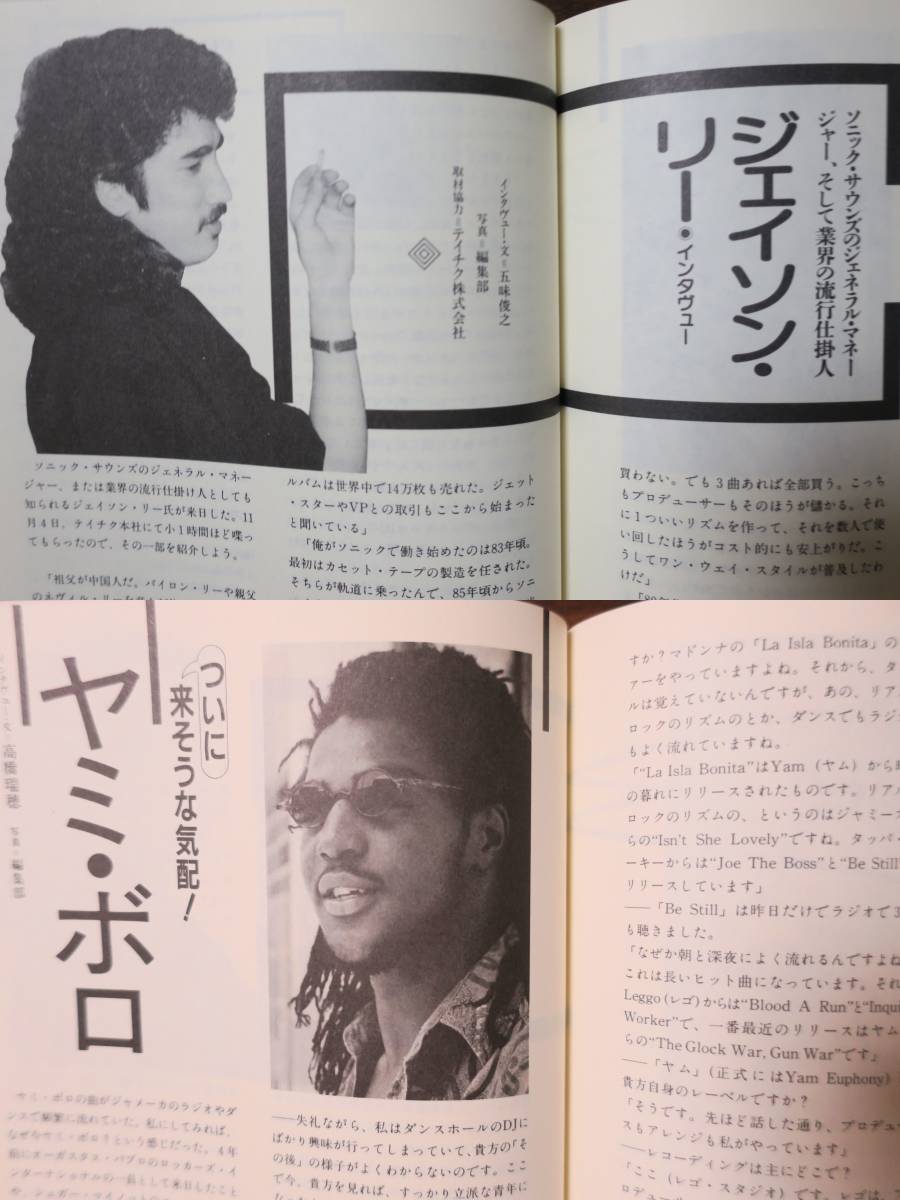 ソニック・サウンズのジェネラル・マネー
ジャー、そして業界の流行仕掛人
ジェイソン・
リー・インタヴュー
インタヴュー・文＝五味俊之
写真＝編集部
取材協力＝テイチク株式会社
ソニック・サウンズのジェネラル・マネー
ジャー、または業界の流行仕掛け人としても
知られるジェイソン・リー氏が来日した。11
月4日、テイチク本社にて小1時間ほど喋っ
てもらったので、その一部を紹介しよう。
「祖父が中国人だ。バイロン・リーや親父
のネヴィル・リー
ルバムは世界中で14万枚も売れた。ジェット
・スターやVPとの取引もここから始まった
と聞いている」
「俺がソニックで働き始めたのは83年頃。
最初はカセット・テープの製造を任された。
そちらが軌道に乗ったんで、85年頃からソニ
買わない。でも3曲あれば全部買う。こっち
もプロデューサーもそのほうが儲かる。それ
に1ついいリズムを作って、それを数人で使
い回したほうがコスト的にも安上がりだ。こ
うしてワン・ウェイ・スタイルが普及したわ
けだ」
ついに
来そうな気配！
ヤミ・ボロ
高橋瑞穂 写真＝編集部
ヤミ・ボロの曲がジャメーカのラジオやダ
ンスで頻繁に流れていた。私にしてみれば、
なぜ今ヤミ・ボロ？という感じだった。4年
前にオーガスタス・パブロのロッカーズ・イ
ンターナショナルの一員として来日したこと
や、シュガー・マイノットの
――失礼ながら、私はダンスホールのDJに
ばかり興味が行ってしまっていて、貴方の「そ
の後」の様子がよくわからないのです。ここ
で今、貴方を見れば、すっかり立派な青年に
すか？マドンナの「La Isla Bonita」の
ァーをやっていますよね。それから、タ
ルは覚えていないんですが、あの、リアル
ロックのリズムのとか、ダンスでもラジ
もよく流れていますね。
「“La Isla Bonita”はYam（ヤム）から
の暮れにリリースされたものです。リアル
ロックのリズムの、というのはジャミー
らの“Isn't She Lovely”ですね。タッパ・
ーキーからは“Joe The Boss”と“Be Still”
リリースしています」
――「Be Still」は昨日だけでラジオで3
も聴きました。
「なぜか朝と深夜によく流れるんですよね
これは長いヒット曲になっています。それ
Leggo（レゴ）からは“Blood A Run”と“Inqui
Worker”で、一番最近のリリースはヤム
らの“The Glock War, Gun War”です」
――「ヤム」（正式にはYam Euphony）
貴方自身のレーベルですか？
「そうです。先ほど話した通り、プロデュー
スもアレンジも私がやっています」
――レコーディングは主にどこで？
「ここ（レゴ・スタジオ）です。レゴは、